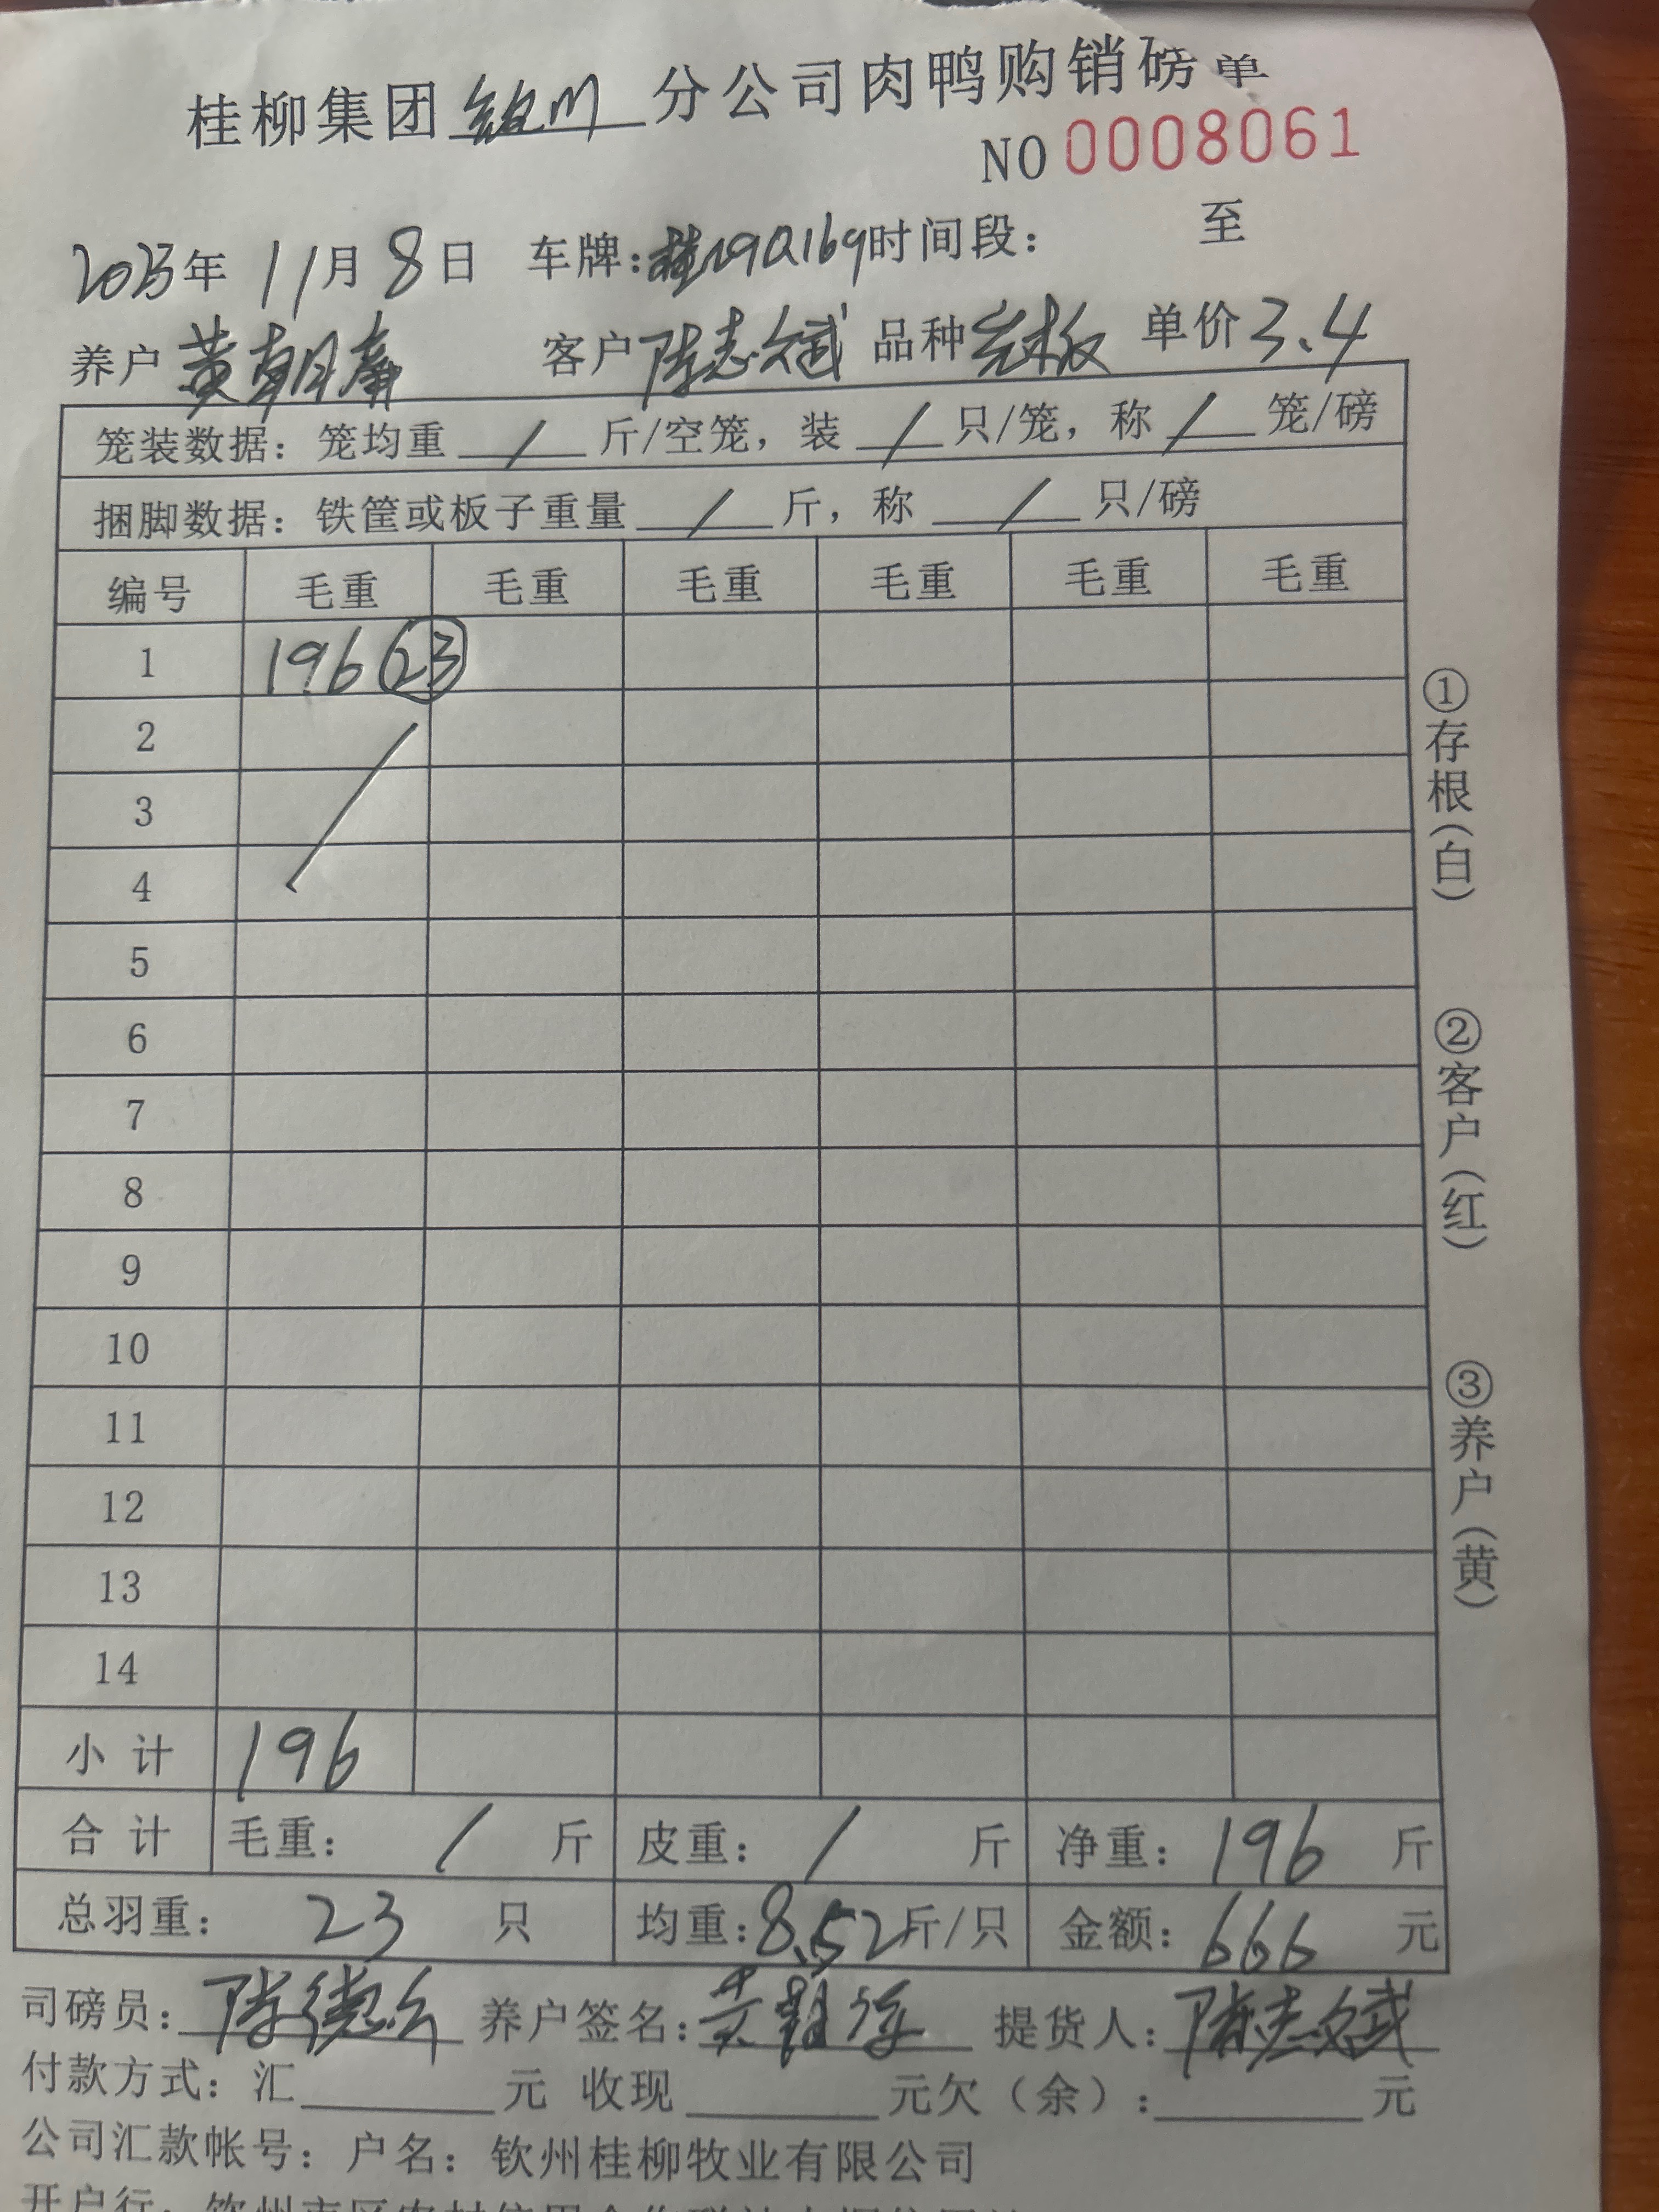 桂柳集团 分公司肉鸭购销磅单
NO 0008061
2023年 11月 8日 车牌: 时间段: 至
养户 黄朝 客户 陈志斌 品种 单价 3.4
笼装数据: 笼均重 / 斤/空笼, 装 / 只/笼, 称 / 笼/磅
捆脚数据: 铁筐或板子重量 / 斤, 称 / 只/磅
编号 毛重 毛重 毛重 毛重 毛重 毛重
1 196 23
2
3
4
5
6
7
8
9
10
11
12
13
14
小计 196
合计 毛重: / 斤 皮重: / 斤 净重: 196 斤
总羽重: 23 只 均重: 8.52 斤/只 金额: 666 元
司磅员: 陈德 养户签名: 黄 提货人: 陈志斌
付款方式: 汇 元 收现 元欠(余): 元
公司汇款帐号: 户名: 钦州桂柳牧业有限公司
开户行:
①存根(白)
②客户(红)
③养户(黄)